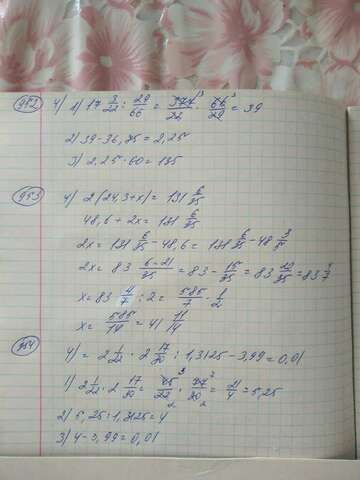 952 4) 1) 17 3/22 : 29/66 = 377/22 · 66/29 = 39
2) 39 - 36,75 = 2,25
3) 2,25 · 60 = 135
953 4) 2(24,3+x) = 131 6/35
48,6 + 2x = 131 6/35
2x = 131 6/35 - 48,6 = 131 6/35 - 48 3/5
2x = 83 6-21/35 = 83 - 15/35 = 83 20/35 = 83 4/7
x = 83 4/7 : 2 = 585/7 · 1/2
x = 585/14 = 41 11/14
954 4) = 2 1/22 · 2 17/30 : 1,3125 - 3,99 = 0,01
1) 2 1/22 · 2 17/30 = 45/22 · 77/30 = 21/4 = 5,25
2) 5,25 : 1,3125 = 4
3) 4 - 3,99 = 0,01